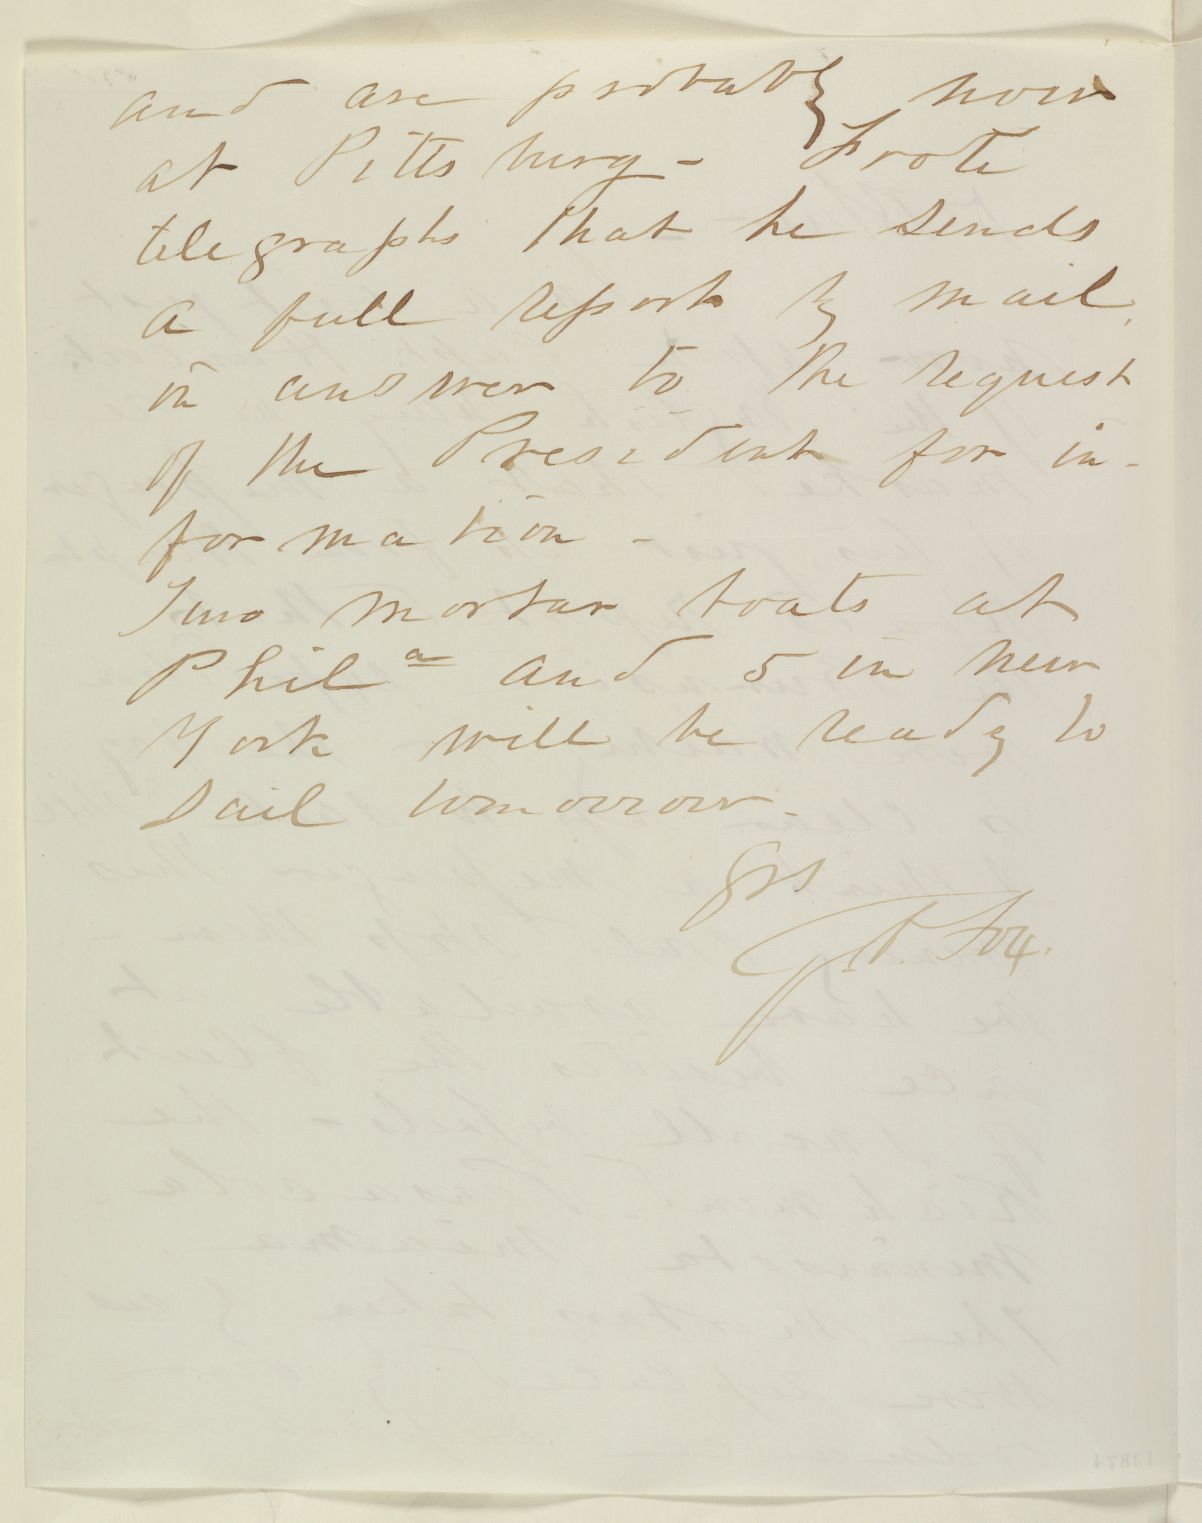 and are probably now
at Pittsburg - Foote
telegraphs that he sends
a full report by mail,
in answer to the request
of the President for in-
formation -
Two mortar boats at
Phila and 5 in New
York will be ready to
sail tomorrow -
Yrs
G. V. Fox.